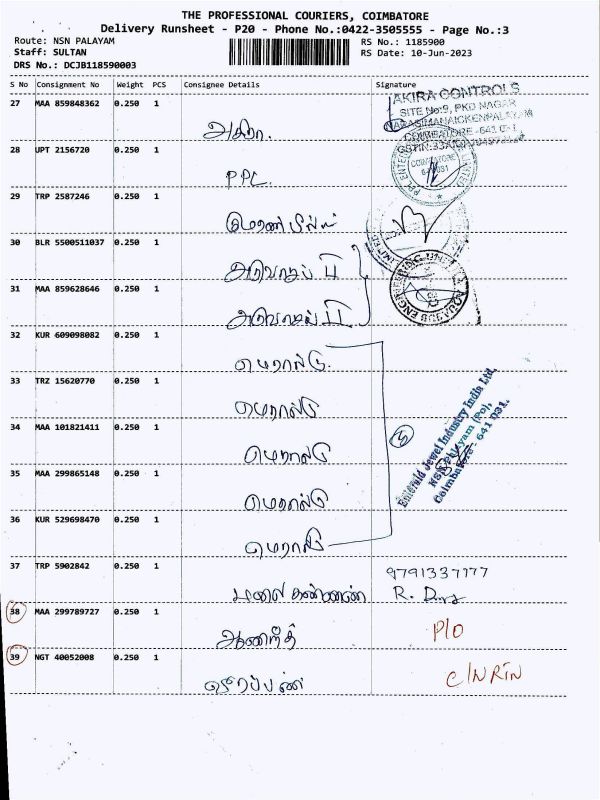 THE PROFESSIONAL COURIERS, COIMBATORE
Delivery Runsheet - P20 - Phone No.:0422-3505555 - Page No.:3
Route: NSN PALAYAM
Staff: SULTAN
DRS No.: DCJB118590003
RS No.: 1185900
RS Date: 10-Jun-2023
S No Consignment No Weight PCS Consignee Details Signature
27 MAA 859848362 0.250 1
AKIRA CONTROLS
SITE No:9, PKD NAGAR
NARASIMANAICKENPALAYAM
COIMBATORE - 641 031
28 UPT 2156720 0.250 1
PPL
29 TRP 2587246 0.250 1
30 BLR 5500511037 0.250 1
31 MAA 859628646 0.250 1
32 KUR 609098082 0.250 1
மெரால்டு
33 TRZ 15620770 0.250 1
மெரால்டு
34 MAA 101821411 0.250 1
மெரால்டு
35 MAA 299865148 0.250 1
மெரால்டு
36 KUR 529698470 0.250 1
மெரால்டு
5
Emerald Jewel Industry India Ltd,
Coimbatore - 641 031.
37 TRP 5902842 0.250 1
9791337177
38 MAA 299789727 0.250 1
P/O
39 NGT 40052008 0.250 1